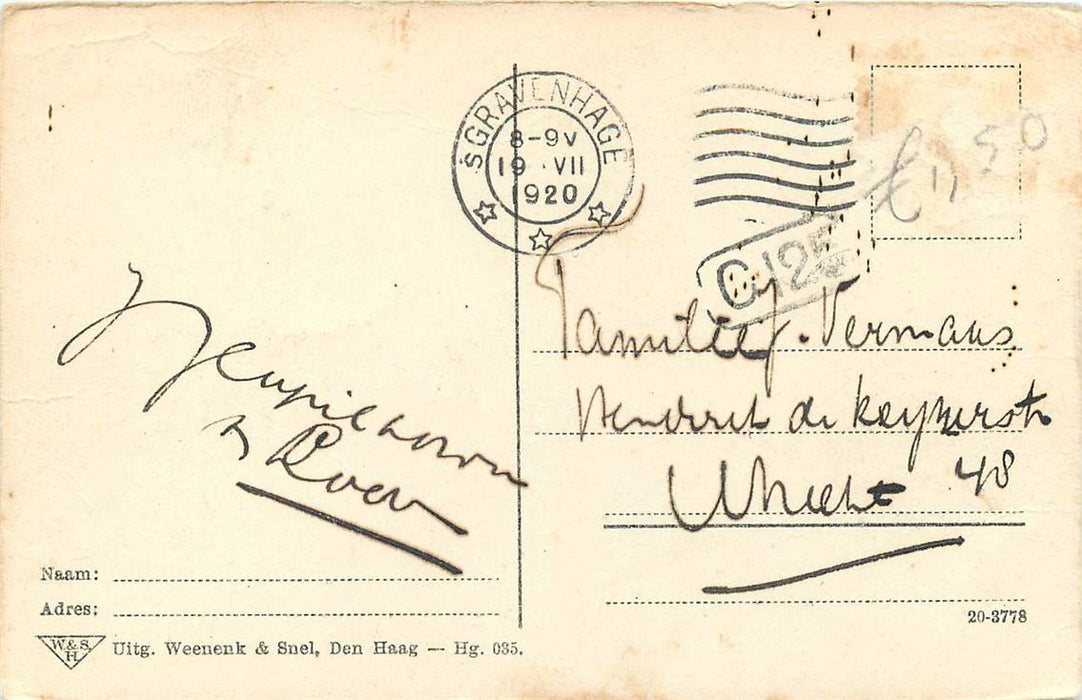 'SGRAVENHAGE
8-9V
19 ·VII
1920
€1,50
C 125
Familie J. Vermaas
de Keyzerstr
Utrecht 48
Naam:
Adres:
W.&S.
H.
Uitg. Weenenk & Snel, Den Haag — Hg. 035.
20-3778